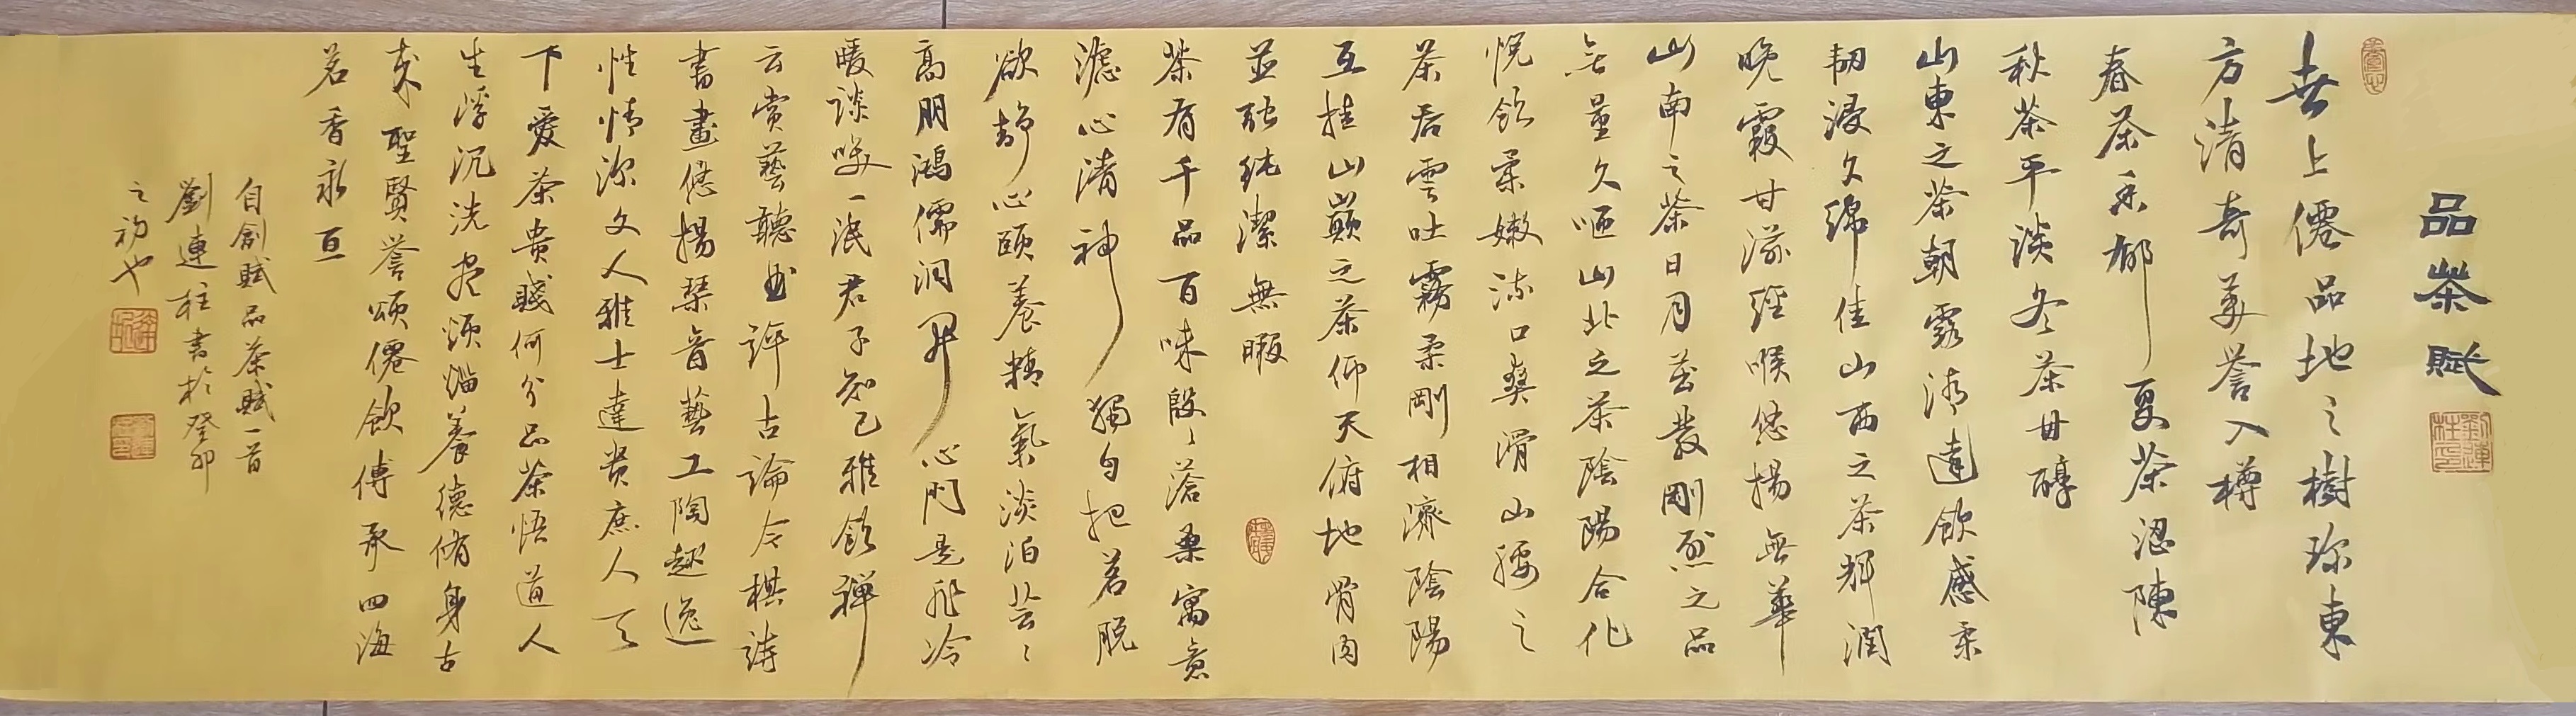 品茶賦
世上僊品地之樹珎東
方清奇美誉入樽
春茶香郁夏茶澀陳
秋茶平淡冬茶甘醇
山東之茶朝露清遠飲感柔
韧浸久綿佳山西之茶輝潤
晚霞甘滋經喉悠揚無華
山南之茶日月蒸發剛烈之品
無量久哂山北之茶陰陽合化
悦飲柔嫩流口爽滑山腰之
茶吞雲吐霧柔剛相濟陰陽
互挂山巔之茶仰天俯地骨肉
並融純潔無暇
茶有千品百味殷殷滄桑寓意
濾心清神獨自把茗脱
欲静心頤養精氣淡泊芸芸
高朋鴻儒洞開心門是非冷
暖談笑一泯君子知己雅飲禅
云赏藝聽曲评古論今棋詩
書畫悠揚琴音藝工陶趣逸
性情深文人雅士達贵庶人天
下愛茶贵賤何分品茶悟道人
生浮沉洗盡烦惱養德脩身古
来聖賢誉頌僊飲傳承四海
茗香永亘
自創賦品茶賦一首
劉連柱書於癸卯
之初也